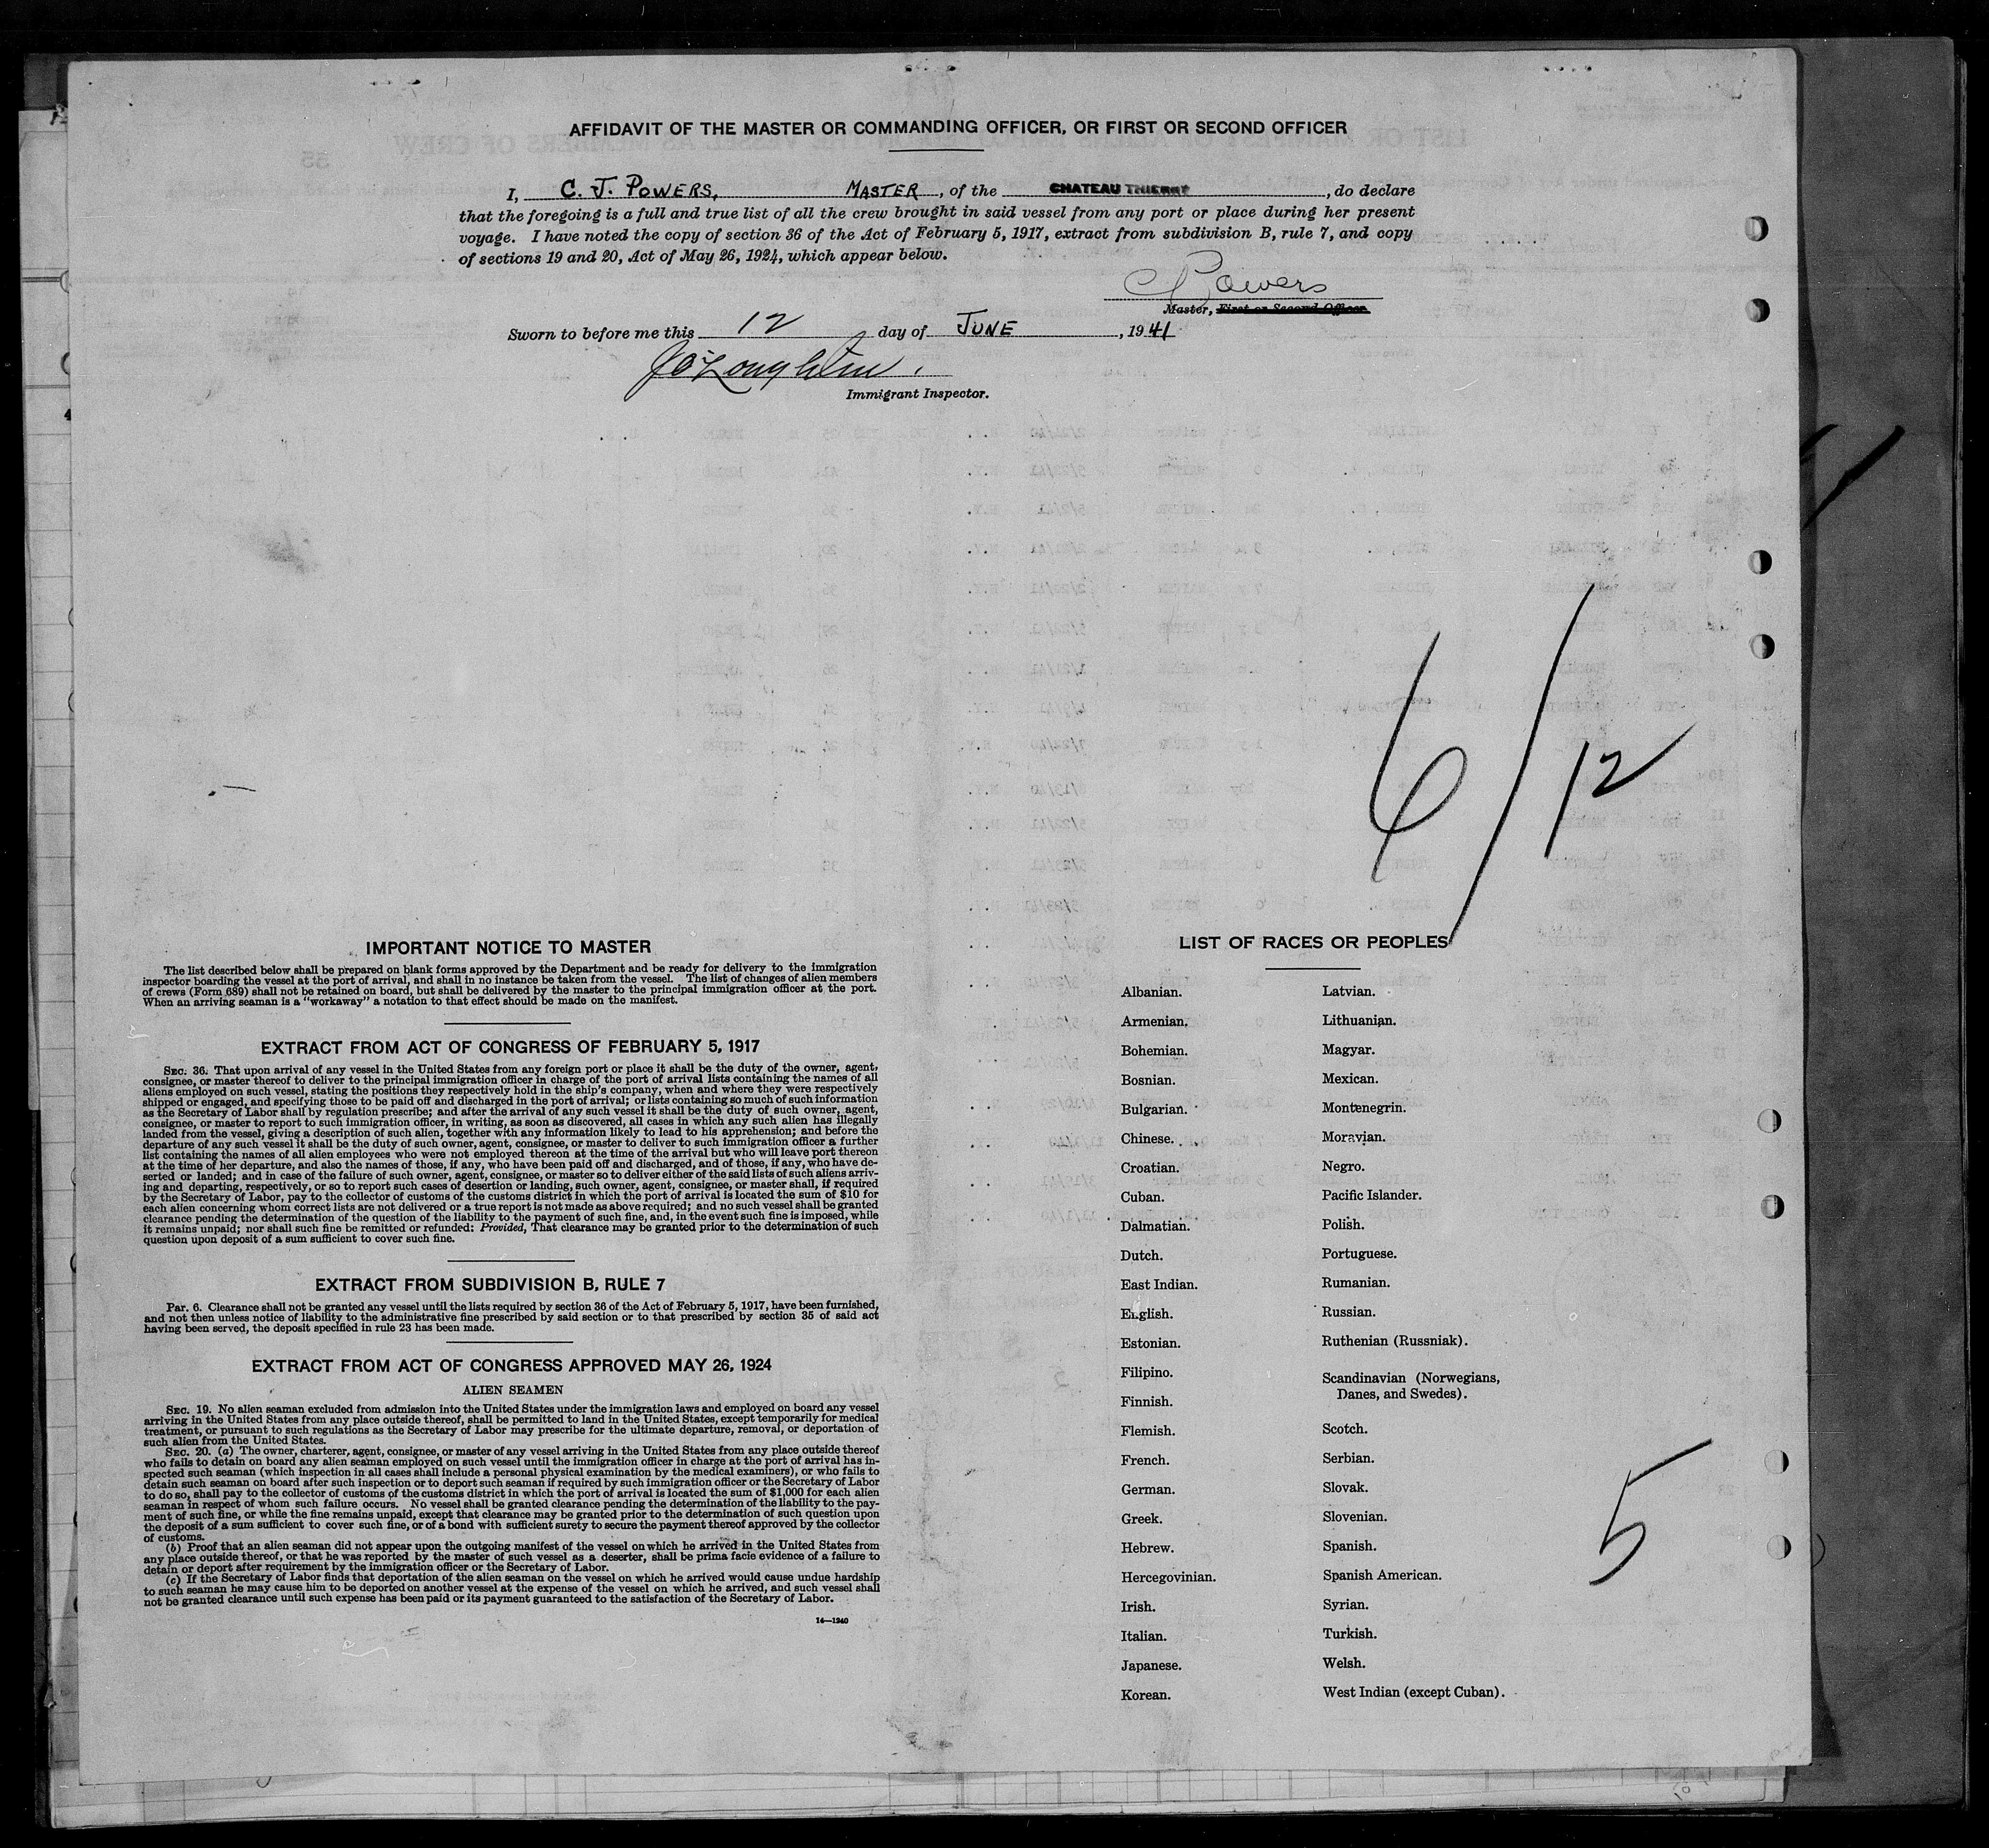 AFFIDAVIT OF THE MASTER OR COMMANDING OFFICER, OR FIRST OR SECOND OFFICER
I, C. J. POWERS, MASTER, of the CHATEAU THIERRY, do declare
that the foregoing is a full and true list of all the crew brought in said vessel from any port or place during her present
voyage. I have noted the copy of section 36 of the Act of February 5, 1917, extract from subdivision B, rule 7, and copy
of sections 19 and 20, Act of May 26, 1924, which appear below.
C J Powers
Master, First or Second Officer.
Sworn to before me this 12 day of JUNE, 1941
J O'Loughlin.
Immigrant Inspector.
6/12
IMPORTANT NOTICE TO MASTER
The list described below shall be prepared on blank forms approved by the Department and be ready for delivery to the immigration
inspector boarding the vessel at the port of arrival, and shall in no instance be taken from the vessel. The list of changes of alien members
of crews (Form 689) shall not be retained on board, but shall be delivered by the master to the principal immigration officer at the port.
When an arriving seaman is a "workaway" a notation to that effect should be made on the manifest.
EXTRACT FROM ACT OF CONGRESS OF FEBRUARY 5, 1917
SEC. 36. That upon arrival of any vessel in the United States from any foreign port or place it shall be the duty of the owner, agent,
consignee, or master thereof to deliver to the principal immigration officer in charge of the port of arrival lists containing the names of all
aliens employed on such vessel, stating the positions they respectively hold in the ship's company, when and where they were respectively
shipped or engaged, and specifying those to be paid off and discharged in the port of arrival; or lists containing so much of such information
as the Secretary of Labor shall by regulation prescribe; and after the arrival of any such vessel it shall be the duty of such owner, agent,
consignee, or master to report to such immigration officer, in writing, as soon as discovered, all cases in which any such alien has illegally
landed from the vessel, giving a description of such alien, together with any information likely to lead to his apprehension; and before the
departure of any such vessel it shall be the duty of such owner, agent, consignee, or master to deliver to such immigration officer a further
list containing the names of all alien employees who were not employed thereon at the time of the arrival but who will leave port thereon
at the time of her departure, and also the names of those, if any, who have been paid off and discharged, and of those, if any, who have de-
serted or landed; and in case of the failure of such owner, agent, consignee, or master so to deliver either of the said lists of such aliens arriv-
ing and departing, respectively, or so to report such cases of desertion or landing, such owner, agent, consignee, or master shall, if required
by the Secretary of Labor, pay to the collector of customs of the customs district in which the port of arrival is located the sum of $10 for
each alien concerning whom correct lists are not delivered or a true report is not made as above required; and no such vessel shall be granted
clearance pending the determination of the question of the liability to the payment of such fine, and, in the event such fine is imposed, while
it remains unpaid; nor shall such fine be remitted or refunded: Provided, That clearance may be granted prior to the determination of such
question upon deposit of a sum sufficient to cover such fine.
EXTRACT FROM SUBDIVISION B, RULE 7
PAR. 6. Clearance shall not be granted any vessel until the lists required by section 36 of the Act of February 5, 1917, have been furnished,
and not then unless notice of liability to the administrative fine prescribed by said section or to that prescribed by section 35 of said act
having been served, the deposit specified in rule 23 has been made.
EXTRACT FROM ACT OF CONGRESS APPROVED MAY 26, 1924
ALIEN SEAMEN
SEC. 19. No alien seaman excluded from admission into the United States under the immigration laws and employed on board any vessel
arriving in the United States from any place outside thereof, shall be permitted to land in the United States, except temporarily for medical
treatment, or pursuant to such regulations as the Secretary of Labor may prescribe for the ultimate departure, removal, or deportation of
such alien from the United States.
SEC. 20. (a) The owner, charterer, agent, consignee, or master of any vessel arriving in the United States from any place outside thereof
who fails to detain on board any alien seaman employed on such vessel until the immigration officer in charge at the port of arrival has in-
spected such seaman (which inspection in all cases shall include a personal physical examination by the medical examiners), or who fails to
detain such seaman on board after such inspection or to deport such seaman if required by such immigration officer or the Secretary of Labor
to do so, shall pay to the collector of customs of the customs district in which the port of arrival is located the sum of $1,000 for each alien
seaman in respect of whom such failure occurs. No vessel shall be granted clearance pending the determination of the liability to the pay-
ment of such fine, or while the fine remains unpaid, except that clearance may be granted prior to the determination of such question upon
the deposit of a sum sufficient to cover such fine, or of a bond with sufficient surety to secure the payment thereof approved by the collector
of customs.
(b) Proof that an alien seaman did not appear upon the outgoing manifest of the vessel on which he arrived in the United States from
any place outside thereof, or that he was reported by the master of such vessel as a deserter, shall be prima facie evidence of a failure to
detain or deport after requirement by the immigration officer or the Secretary of Labor.
(c) If the Secretary of Labor finds that deportation of the alien seaman on the vessel on which he arrived would cause undue hardship
to such seaman he may cause him to be deported on another vessel at the expense of the vessel on which he arrived, and such vessel shall
not be granted clearance until such expense has been paid or its payment guaranteed to the satisfaction of the Secretary of Labor.
14—1240
LIST OF RACES OR PEOPLES
Albanian.
Armenian.
Bohemian.
Bosnian.
Bulgarian.
Chinese.
Croatian.
Cuban.
Dalmatian.
Dutch.
East Indian.
English.
Estonian.
Filipino.
Finnish.
Flemish.
French.
German.
Greek.
Hebrew.
Hercegovinian.
Irish.
Italian.
Japanese.
Korean.
Latvian.
Lithuanian.
Magyar.
Mexican.
Montenegrin.
Moravian.
Negro.
Pacific Islander.
Polish.
Portuguese.
Rumanian.
Russian.
Ruthenian (Russniak).
Scandinavian (Norwegians,
Danes, and Swedes).
Scotch.
Serbian.
Slovak.
Slovenian.
Spanish.
Spanish American.
Syrian.
Turkish.
Welsh.
West Indian (except Cuban).
5